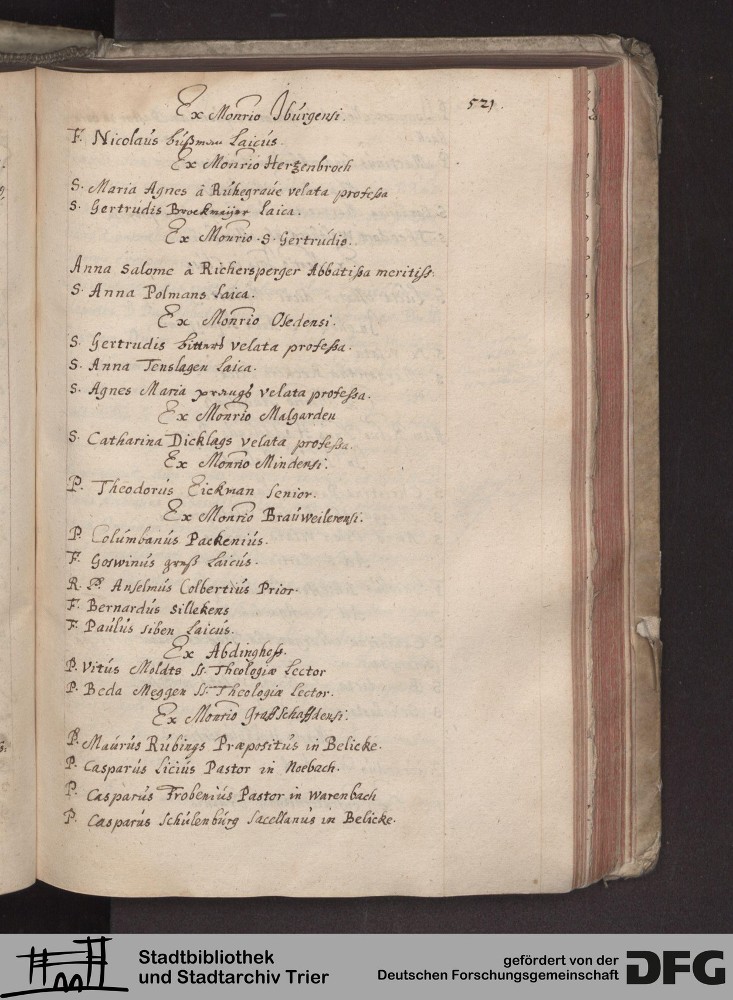 521.
Ex Monrio Iburgensi.
F. Nicolaús búßman Laicús.
Ex Monrio Herzenbroch
S. Maria Agnes â Rúhegraúe velata professa
S. Gertrudis Broekmaijer Laica.
Ex Monrio S. Gertrúdis.
Anna Salome â Richersperger Abbatißa meritiss:
S. Anna Polmans Laica.
Ex Monrio Osedensi.
S. Gertrudis velata profeßa.
S. Anna Tenslagen Laica.
S. Agnes Maria velata profeßa.
Ex Monrio Malgarden
S. Catharina Dicklags velata profeßa.
Ex Monrio Mindensi.
P. Theodorús Eickman Senior.
Ex Monrio Braúweilerensi.
P. Columbanús Packenius.
F. Goswinús Laicús.
R. P. Anselmús Colbertiús Prior.
F. Bernardús Sillekens
F. Paúlús Siben Laicús.
Ex Abdinghoff.
P. Vitús Moldts SS. Theologiæ Lector
P. Beda Meggen SS. Theologiæ Lector.
Ex Monrio Graffschaffdensi.
P. Maúrús Rúbings Præpositús in Belicke.
P. Casparús Liciús Pastor in Noebach.
P. Casparús Frobeniús Pastor in Warenbach
P. Casparús Schúlenbúrg Sacellanús in Belicke.
Stadtbibliothek
und Stadtarchiv Trier
gefördert von der
Deutschen Forschungsgemeinschaft
DFG